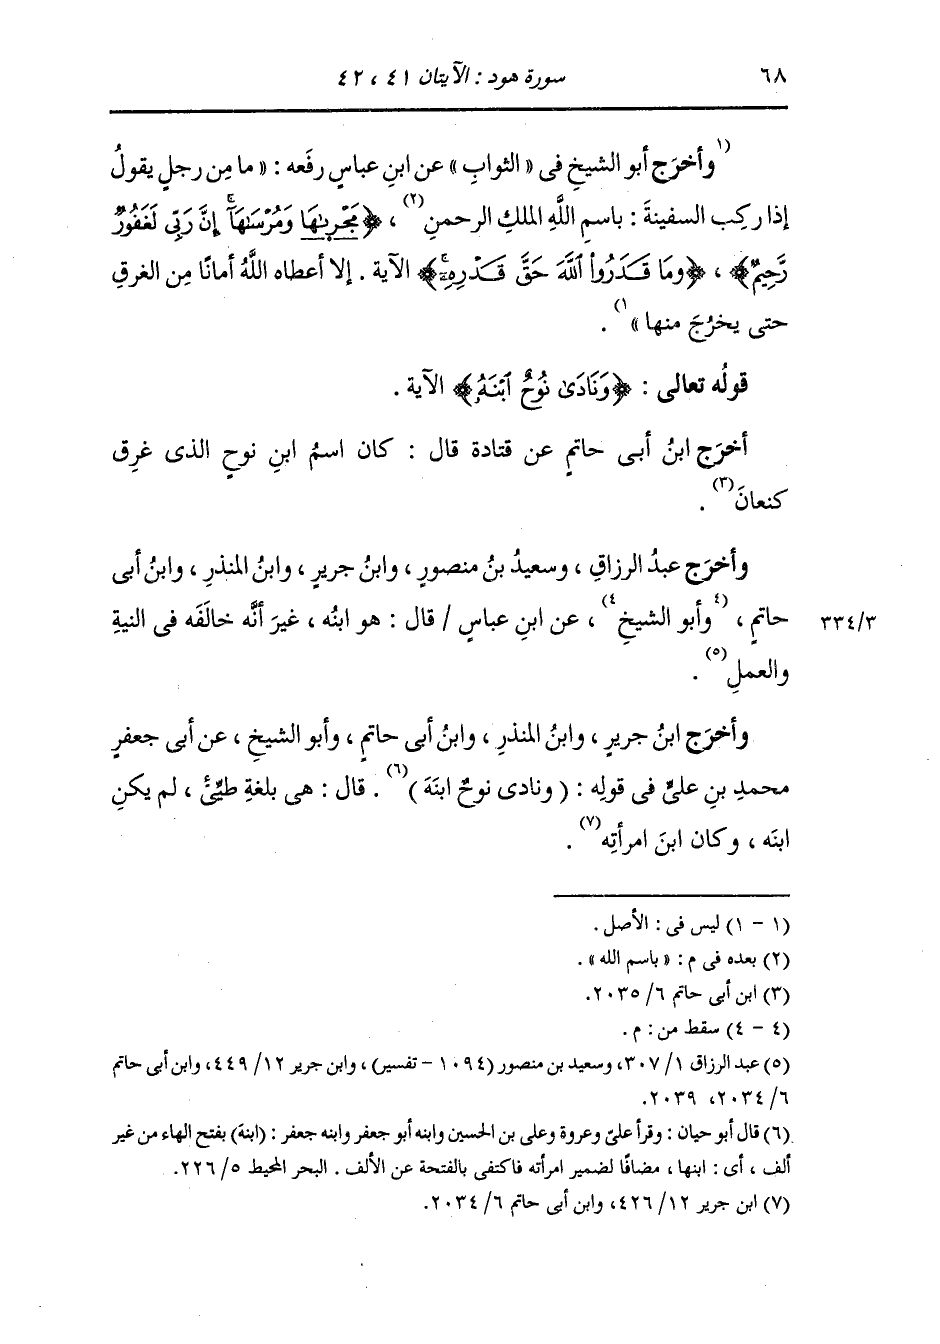 ٦٨ سورة هود : الآيتان ٤١ ، ٤٢
(١وأخرَج أبو الشيخِ فى «الثوابِ» عن ابنِ عباسٍ رفَعه : « ما مِن رجلٍ يقولُ
إذا ركِب السفينةَ : باسمِ اللَّهِ الملكِ الرحمنِ(٢) ، ﴿مَجْرٜىٰهَا وَمُرْسَىٰهَآۚ إِنَّ رَبِّى لَغَفُورٌ
رَّحِيمٌ﴾ ، ﴿وَمَا قَدَرُوا۟ ٱللَّهَ حَقَّ قَدْرِهِۦٓ﴾ الآية . إلا أعطاه اللَّهُ أمانًا مِن الغرقِ
حتى يخرُجَ منها »١) .
قولُه تعالى : ﴿وَنَادَىٰ نُوحٌ ٱبْنَهُۥ﴾ الآية .
أخرَج ابنُ أبى حاتمٍ عن قتادةَ قال : كان اسمُ ابنِ نوحٍ الذى غرِق
كنعانَ(٣) .
وأخرَج عبدُ الرزاقِ ، وسعيدُ بنُ منصورٍ ، وابنُ جريرٍ ، وابنُ المنذرِ ، وابنُ أبى
حاتمٍ ، (٤وأبو الشيخِ٤) ، عن ابنِ عباسٍ / قال : هو ابنُه ، غيرَ أنَّه خالَفَه فى النيةِ ٣٣٤/٣
والعملِ(٥) .
وأخرَج ابنُ جريرٍ ، وابنُ المنذرِ ، وابنُ أبى حاتمٍ ، وأبو الشيخِ ، عن أبى جعفرٍ
محمدِ بنِ علىٍّ فى قولِه : ( ونادى نوحٌ ابنَهَ )(٦) . قال : هى بلغةِ طيِّئٍ ، لم يكنِ
ابنَه ، وكان ابنَ امرأتِه(٧) .
(١ - ١) ليس فى : الأصل .
(٢) بعده فى م : « باسم الله » .
(٣) ابن أبى حاتم ٦/ ٢٠٣٥.
(٤ - ٤) سقط من : م .
(٥) عبد الرزاق ١/ ٣٠٧، وسعيد بن منصور (١٠٩٤ - تفسير) ، وابن جرير ١٢/ ٤٤٩، وابن أبى حاتم
٦/ ٢٠٣٤، ٢٠٣٩.
(٦) قال أبو حيان : وقرأ علىّ وعروة وعلى بن الحسين وابنه أبو جعفر وابنه جعفر : (ابنهَ) بفتح الهاء من غير
ألف ، أى : ابنها ، مضافًا لضمير امرأته فاكتفى بالفتحة عن الألف . البحر المحيط ٥/ ٢٢٦.
(٧) ابن جرير ١٢/ ٤٢٦، وابن أبى حاتم ٦/ ٢٠٣٤.